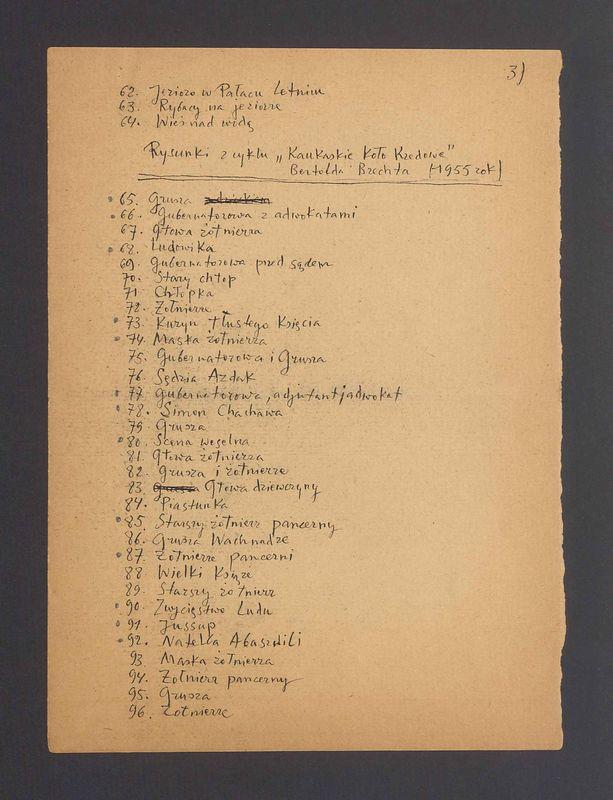 3)
62. Jezioro w Pałacu Letnim
63. Rybacy na jeziorze
64. Wieś nad wodą
Rysunki z cyklu „Kaukaskie Koło Kredowe"
Bertolda Brechta (1955 rok)
65. Grusza
66. Gubernatorowa z adwokatami
67. Głowa żołnierza
68. Ludowika
69. Gubernatorowa przed sądem
70. Stary chłop
71. Chłopka
72. Żołnierze
73. Kuzyn Tłustego Księcia
74. Maska żołnierza
75. Gubernatorowa i Grusza
76. Sędzia Azdak
77. Gubernatorowa, adjutant i adwokat
78. Simon Chachawa
79. Grusza
80. Scena weselna
81. Głowa żołnierza
82. Grusza i żołnierze
83. Głowa dziewczyny
84. Piastunka
85. Starszy żołnierz pancerny
86. Grusza Wachnadze
87. Żołnierze pancerni
88. Wielki Książe
89. Starszy żołnierz
90. Zwycięstwo Ludu
91. Jussup
92. Natella Abaszwili
93. Maska żołnierza
94. Żołnierz pancerny
95. Grusza
96. Żołnierze